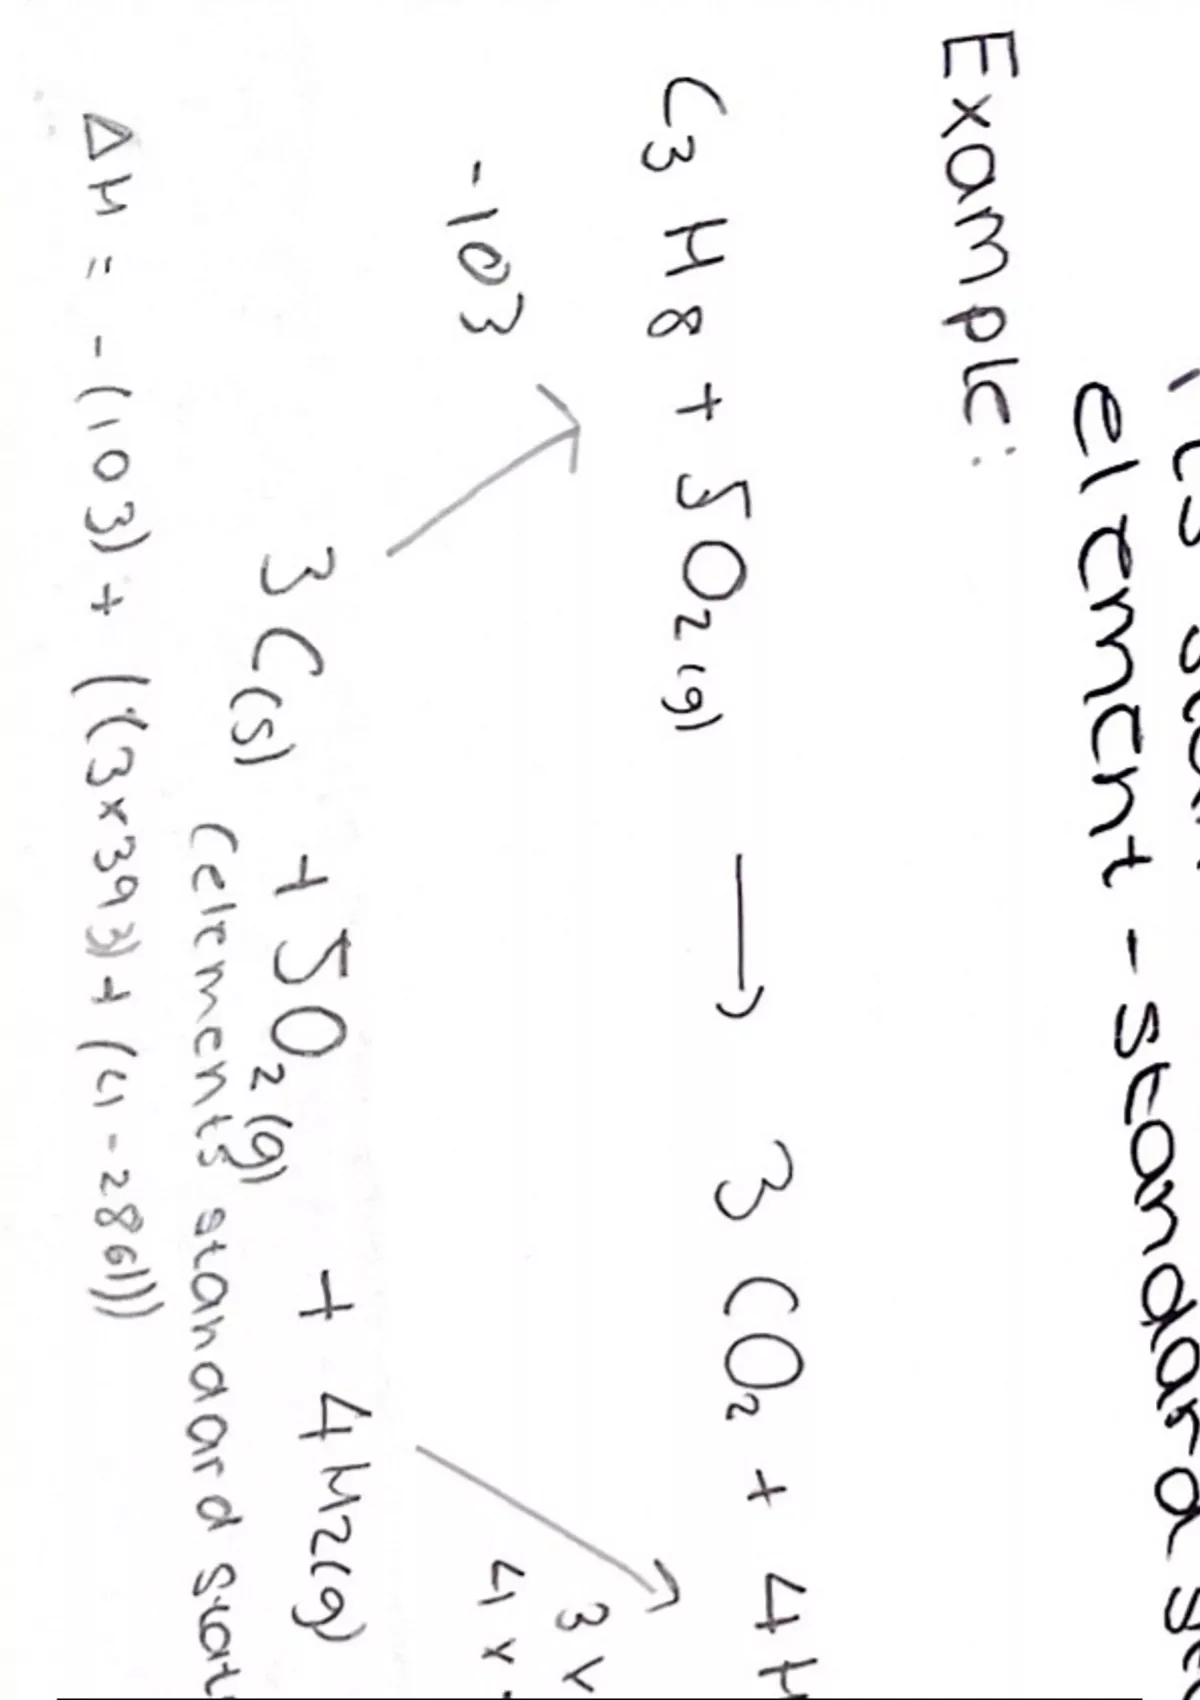 element - standard
Example:
C3H8 + 5O2(g) → 3CO2 + 4H
-103
3 x
4 x
3C(s) + 5O2(g) + 4H2(g)
(elements standard stat
ΔH = -(103) + ((3x393) + (4-286)))